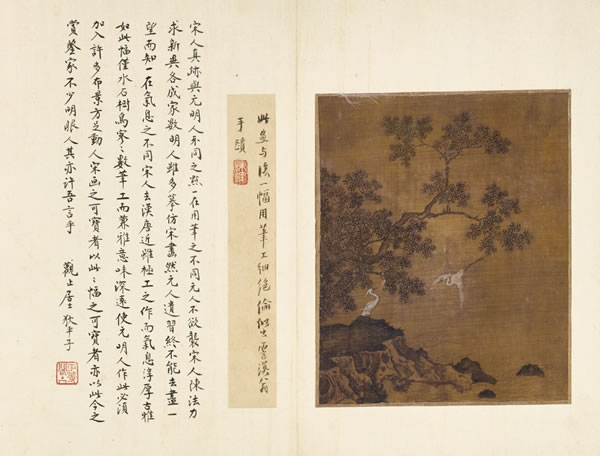 此畫与後一幅用筆工細絕倫似出雪溪翁
手蹟
宋人真跡與元明人不同之點一在用筆之不同元人不欲襲宋人陳法力
求新異各成家數明人雖多摹仿宋畫然元人遺習終不能去盡一
望而知一在氣息之不同宋人去漢唐近雖極工之作而氣息淳厚古雅
如此幅僅水石樹鳥寥〻數筆工而兼雅意味深遠使元明人作此必須
加入許多布景方足動人宋画之可寶者以此〻幅之可寶者亦以此今之
賞鑒家不少明眼人其亦許吾言乎 觀止居士狄平子